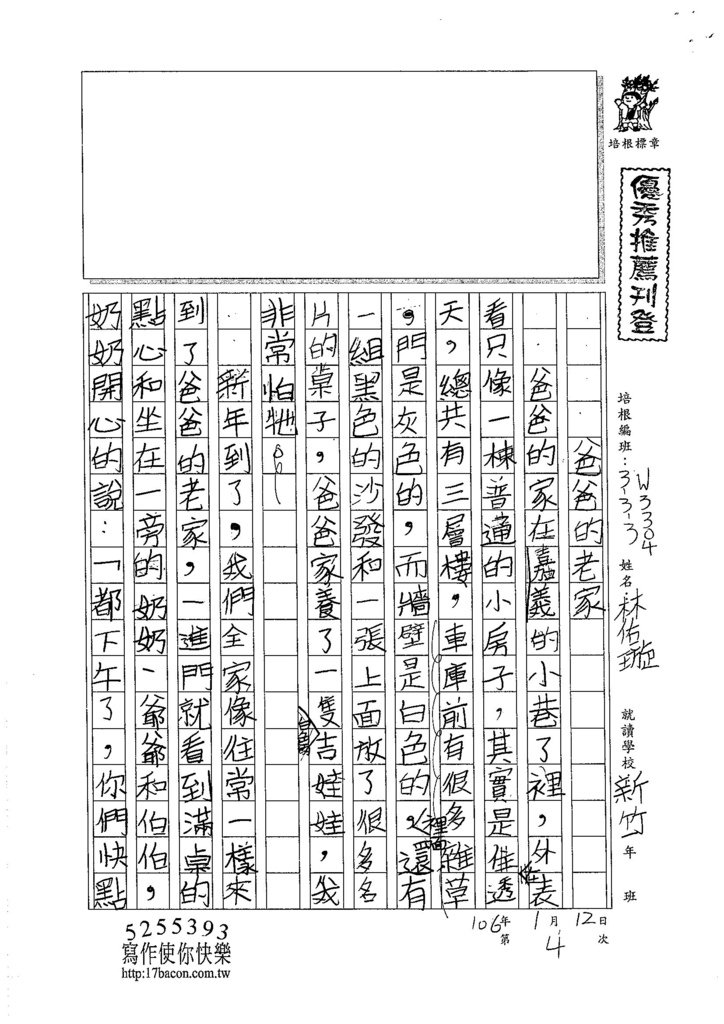 培根標章
優秀推薦刊登
培根編班：3-3-3
W3304
姓名：林佑璇
就讀學校 新竹 年 班
106年 1月 12日
第 4 次
爸爸的老家
爸爸的家在嘉義的小巷了裡，外表
看只像一棟普通的小房子，其實是住透
天，總共有三層樓，車庫前有很多雜草
，門是灰色的，而牆壁是白色的，裡面還有
一組黑色的沙發和一張上面放了很多名
片的桌子，爸爸家養了一隻吉娃娃，我
非常怕牠。
新年到了，我們全家像往常一樣來
到了爸爸的老家，一進門就看到滿桌的
點心和坐在一旁的奶奶、爺爺和伯伯，
奶奶開心的說：「都下午了，你們快點
5255393
寫作使你快樂
http:17bacon.com.tw